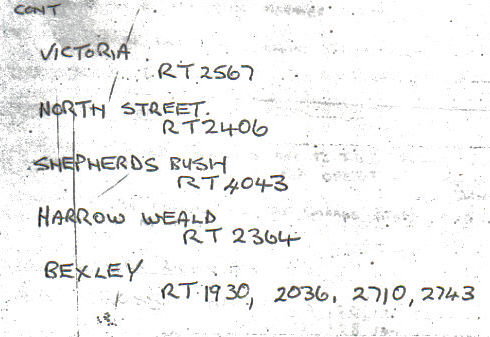 CONT
VICTORIA
RT 2567
NORTH STREET.
RT 2406
SHEPHERDS BUSH
RT 4043
HARROW WEALD
RT 2364
BEXLEY
RT 1930, 2036, 2710, 2743